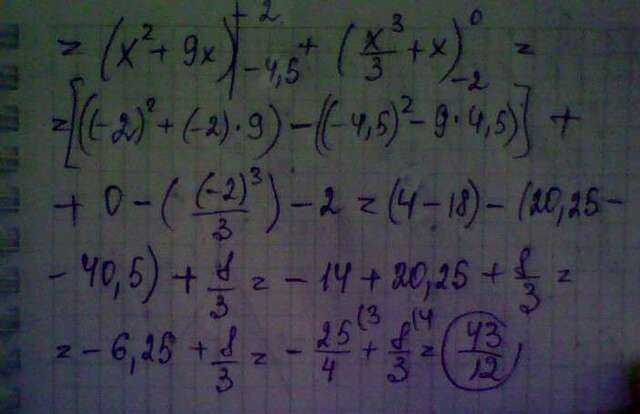 = (x² + 9x)|₋₄,₅⁺² + (x³/3 + x)₋₂⁰ =
= [((-2)² + (-2)·9) - ((-4,5)² - 9·4,5)] +
+ 0 - ((-2)³/3) - 2 = (4 - 18) - (20,25 -
- 40,5) + 8/3 = - 14 + 20,25 + 8/3 =
= - 6,25 + 8/3 = - 25/4 (3 + 8/3 (4 = 43/12,